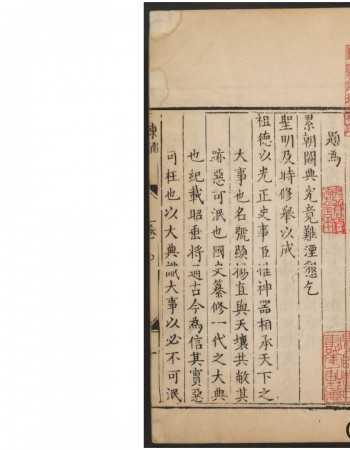 題為
累朝闕典究竟難湮懇乞
聖明及時修舉以成
祖德以光正史事臣惟神器相承天下之
大事也名號顯揚直與天壤共敝其
跡惡可泯也國史纂修一代之大典
也紀載昭垂將通古今為信其實惡
可枉也以大典識大事以必不可泯